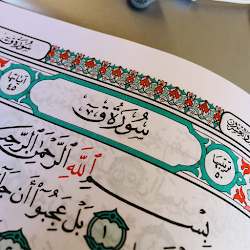 سُورَةُ قٓ
ترتيبها ٥٠ سُورَةُ قٓ آياتها ٤٥
بِسْمِ ٱللَّهِ ٱلرَّحْمَٰنِ ٱلرَّحِيمِ
١ بَلْ عَجِبُوٓا۟ أَن جَآ